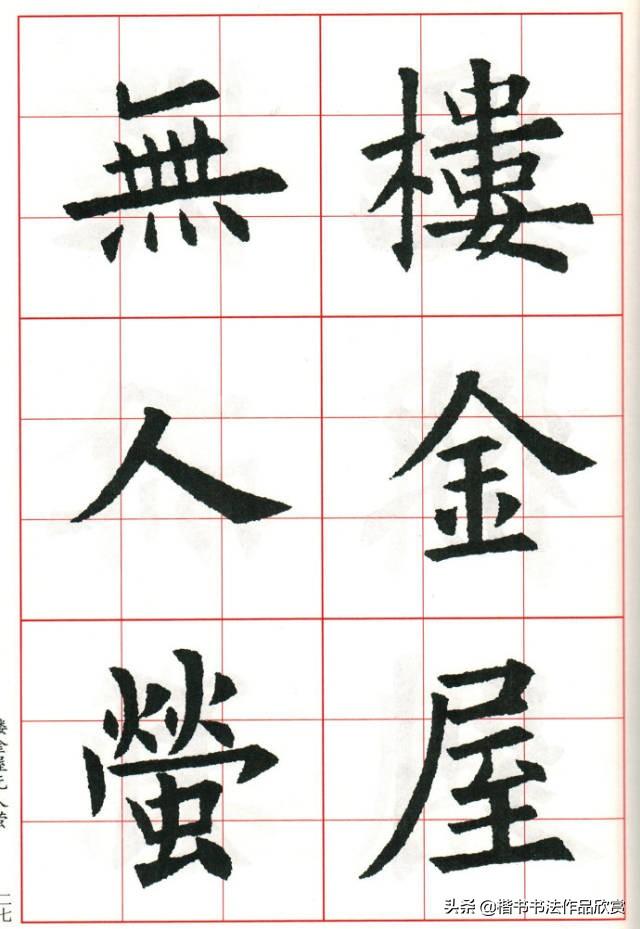 樓金屋
無人螢
楼金屋无人萤
二七
头条 @楷书书法作品欣赏